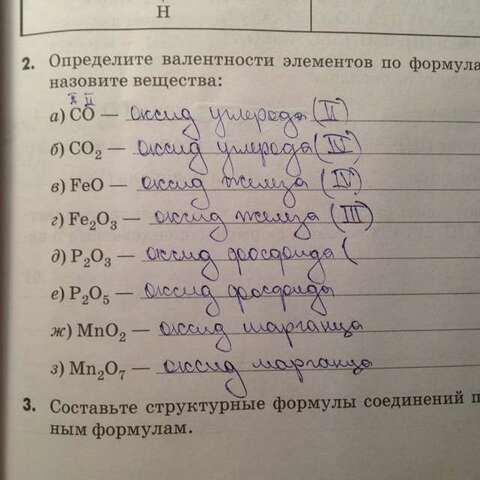 H
2. Определите валентности элементов по формула
назовите вещества:
II II
а) CO — оксид углерода (II)
б) CO₂ — оксид углерода (IV)
в) FeO — оксид железа (IV)
г) Fe₂O₃ — оксид железа (III)
д) P₂O₃ — оксид фосфоида (
е) P₂O₅ — оксид фосфоида
ж) MnO₂ — оксид марганца
з) Mn₂O₇ — оксид марганца
3. Составьте структурные формулы соединений п
ным формулам.